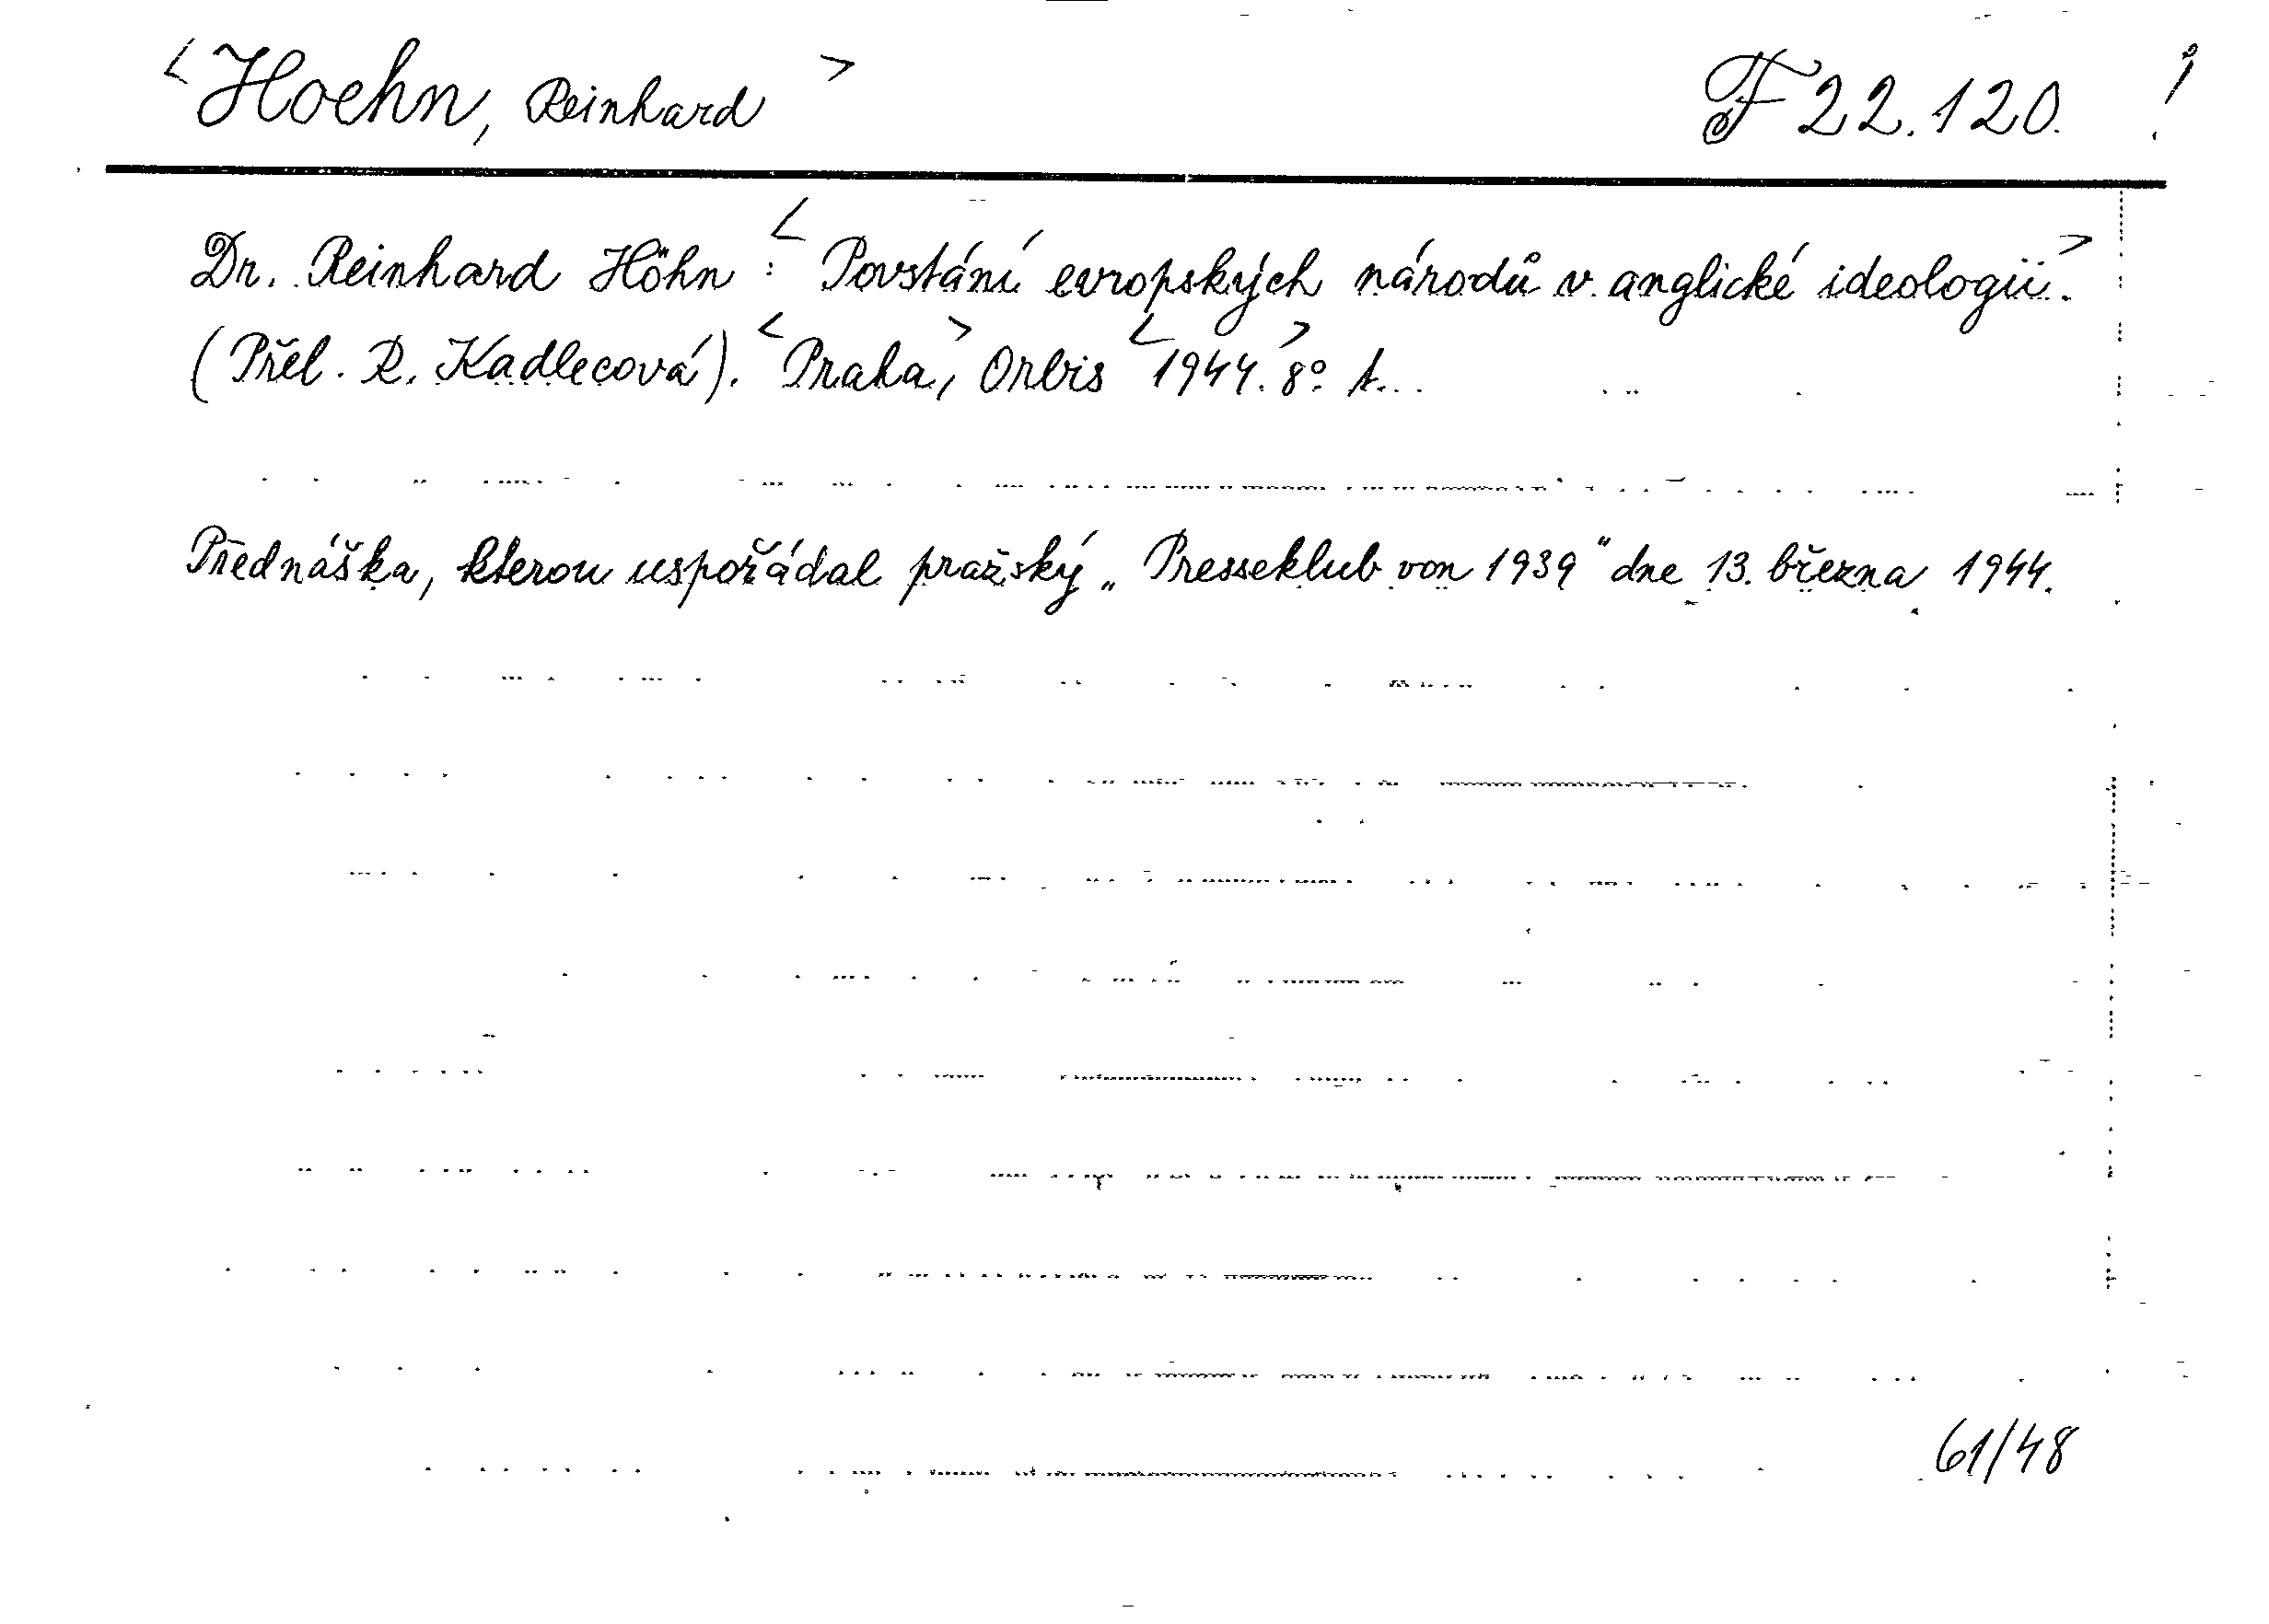 <Hoehn, Reinhard> F 22.120. !
Dr. Reinhard Höhn: <Povstání evropských národů v anglické ideologii>.
(Přel. R. Kadlecová). <Praha>, Orbis <1944.> 8°.
Přednáška, kterou uspořádal pražský „Presseklub von 1939“ dne 13. března 1944.
61/48